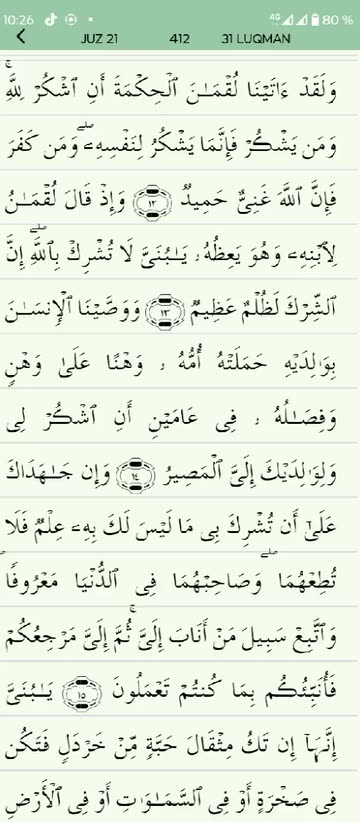 10:26 4G 80 %
JUZ 21 412 31 LUQMAN
وَلَقَدْ ءَاتَيْنَا لُقْمَـٰنَ ٱلْحِكْمَةَ أَنِ ٱشْكُرْ لِلَّهِ ۚ
وَمَن يَشْكُرْ فَإِنَّمَا يَشْكُرُ لِنَفْسِهِۦ ۖ وَمَن كَفَرَ
فَإِنَّ ٱللَّهَ غَنِىٌّ حَمِيدٌ ١٢ وَإِذْ قَالَ لُقْمَـٰنُ
لِٱبْنِهِۦ وَهُوَ يَعِظُهُۥ يَـٰبُنَىَّ لَا تُشْرِكْ بِٱللَّهِ ۖ إِنَّ
ٱلشِّرْكَ لَظُلْمٌ عَظِيمٌ ١٣ وَوَصَّيْنَا ٱلْإِنسَـٰنَ
بِوَٰلِدَيْهِ حَمَلَتْهُ أُمُّهُۥ وَهْنًا عَلَىٰ وَهْنٍ
وَفِصَـٰلُهُۥ فِى عَامَيْنِ أَنِ ٱشْكُرْ لِى
وَلِوَٰلِدَيْكَ إِلَىَّ ٱلْمَصِيرُ ١٤ وَإِن جَـٰهَدَاكَ
عَلَىٰٓ أَن تُشْرِكَ بِى مَا لَيْسَ لَكَ بِهِۦ عِلْمٌ فَلَا
تُطِعْهُمَا ۖ وَصَاحِبْهُمَا فِى ٱلدُّنْيَا مَعْرُوفًا ۖ
وَٱتَّبِعْ سَبِيلَ مَنْ أَنَابَ إِلَىَّ ۚ ثُمَّ إِلَىَّ مَرْجِعُكُمْ
فَأُنَبِّئُكُم بِمَا كُنتُمْ تَعْمَلُونَ ١٥ يَـٰبُنَىَّ
إِنَّهَآ إِن تَكُ مِثْقَالَ حَبَّةٍ مِّنْ خَرْدَلٍ فَتَكُن
فِى صَخْرَةٍ أَوْ فِى ٱلسَّمَـٰوَٰتِ أَوْ فِى ٱلْأَرْضِ